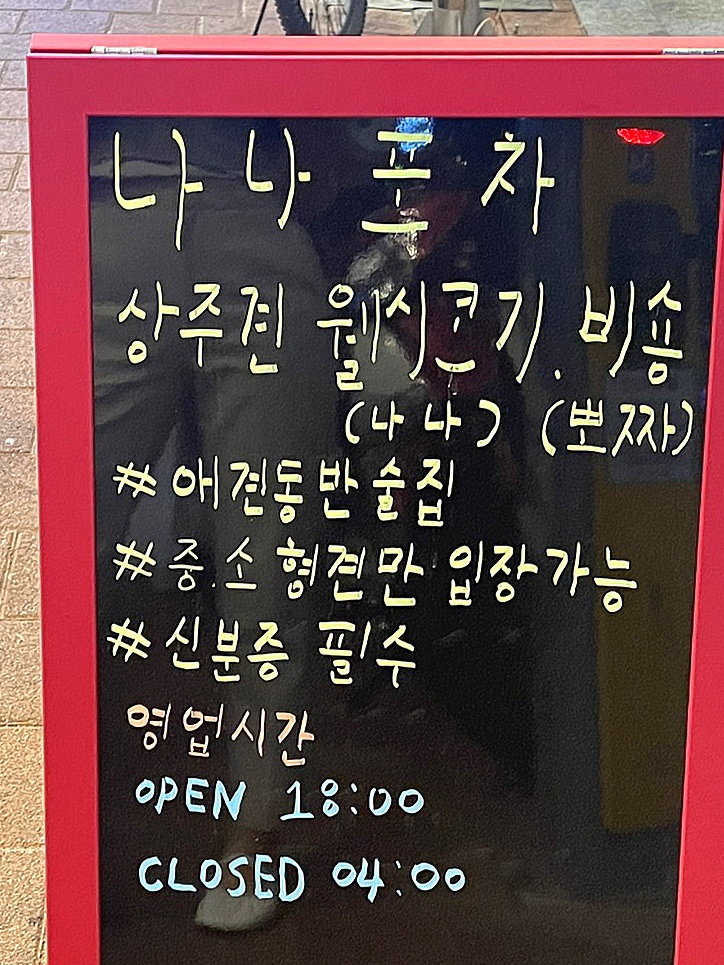 나나포차
상주견 웰시코기. 비숑
(나나) (뽀짜)
# 애견동반술집
# 중.소형견만 입장가능
# 신분증 필수
영업시간
OPEN 18:00
CLOSED 04:00